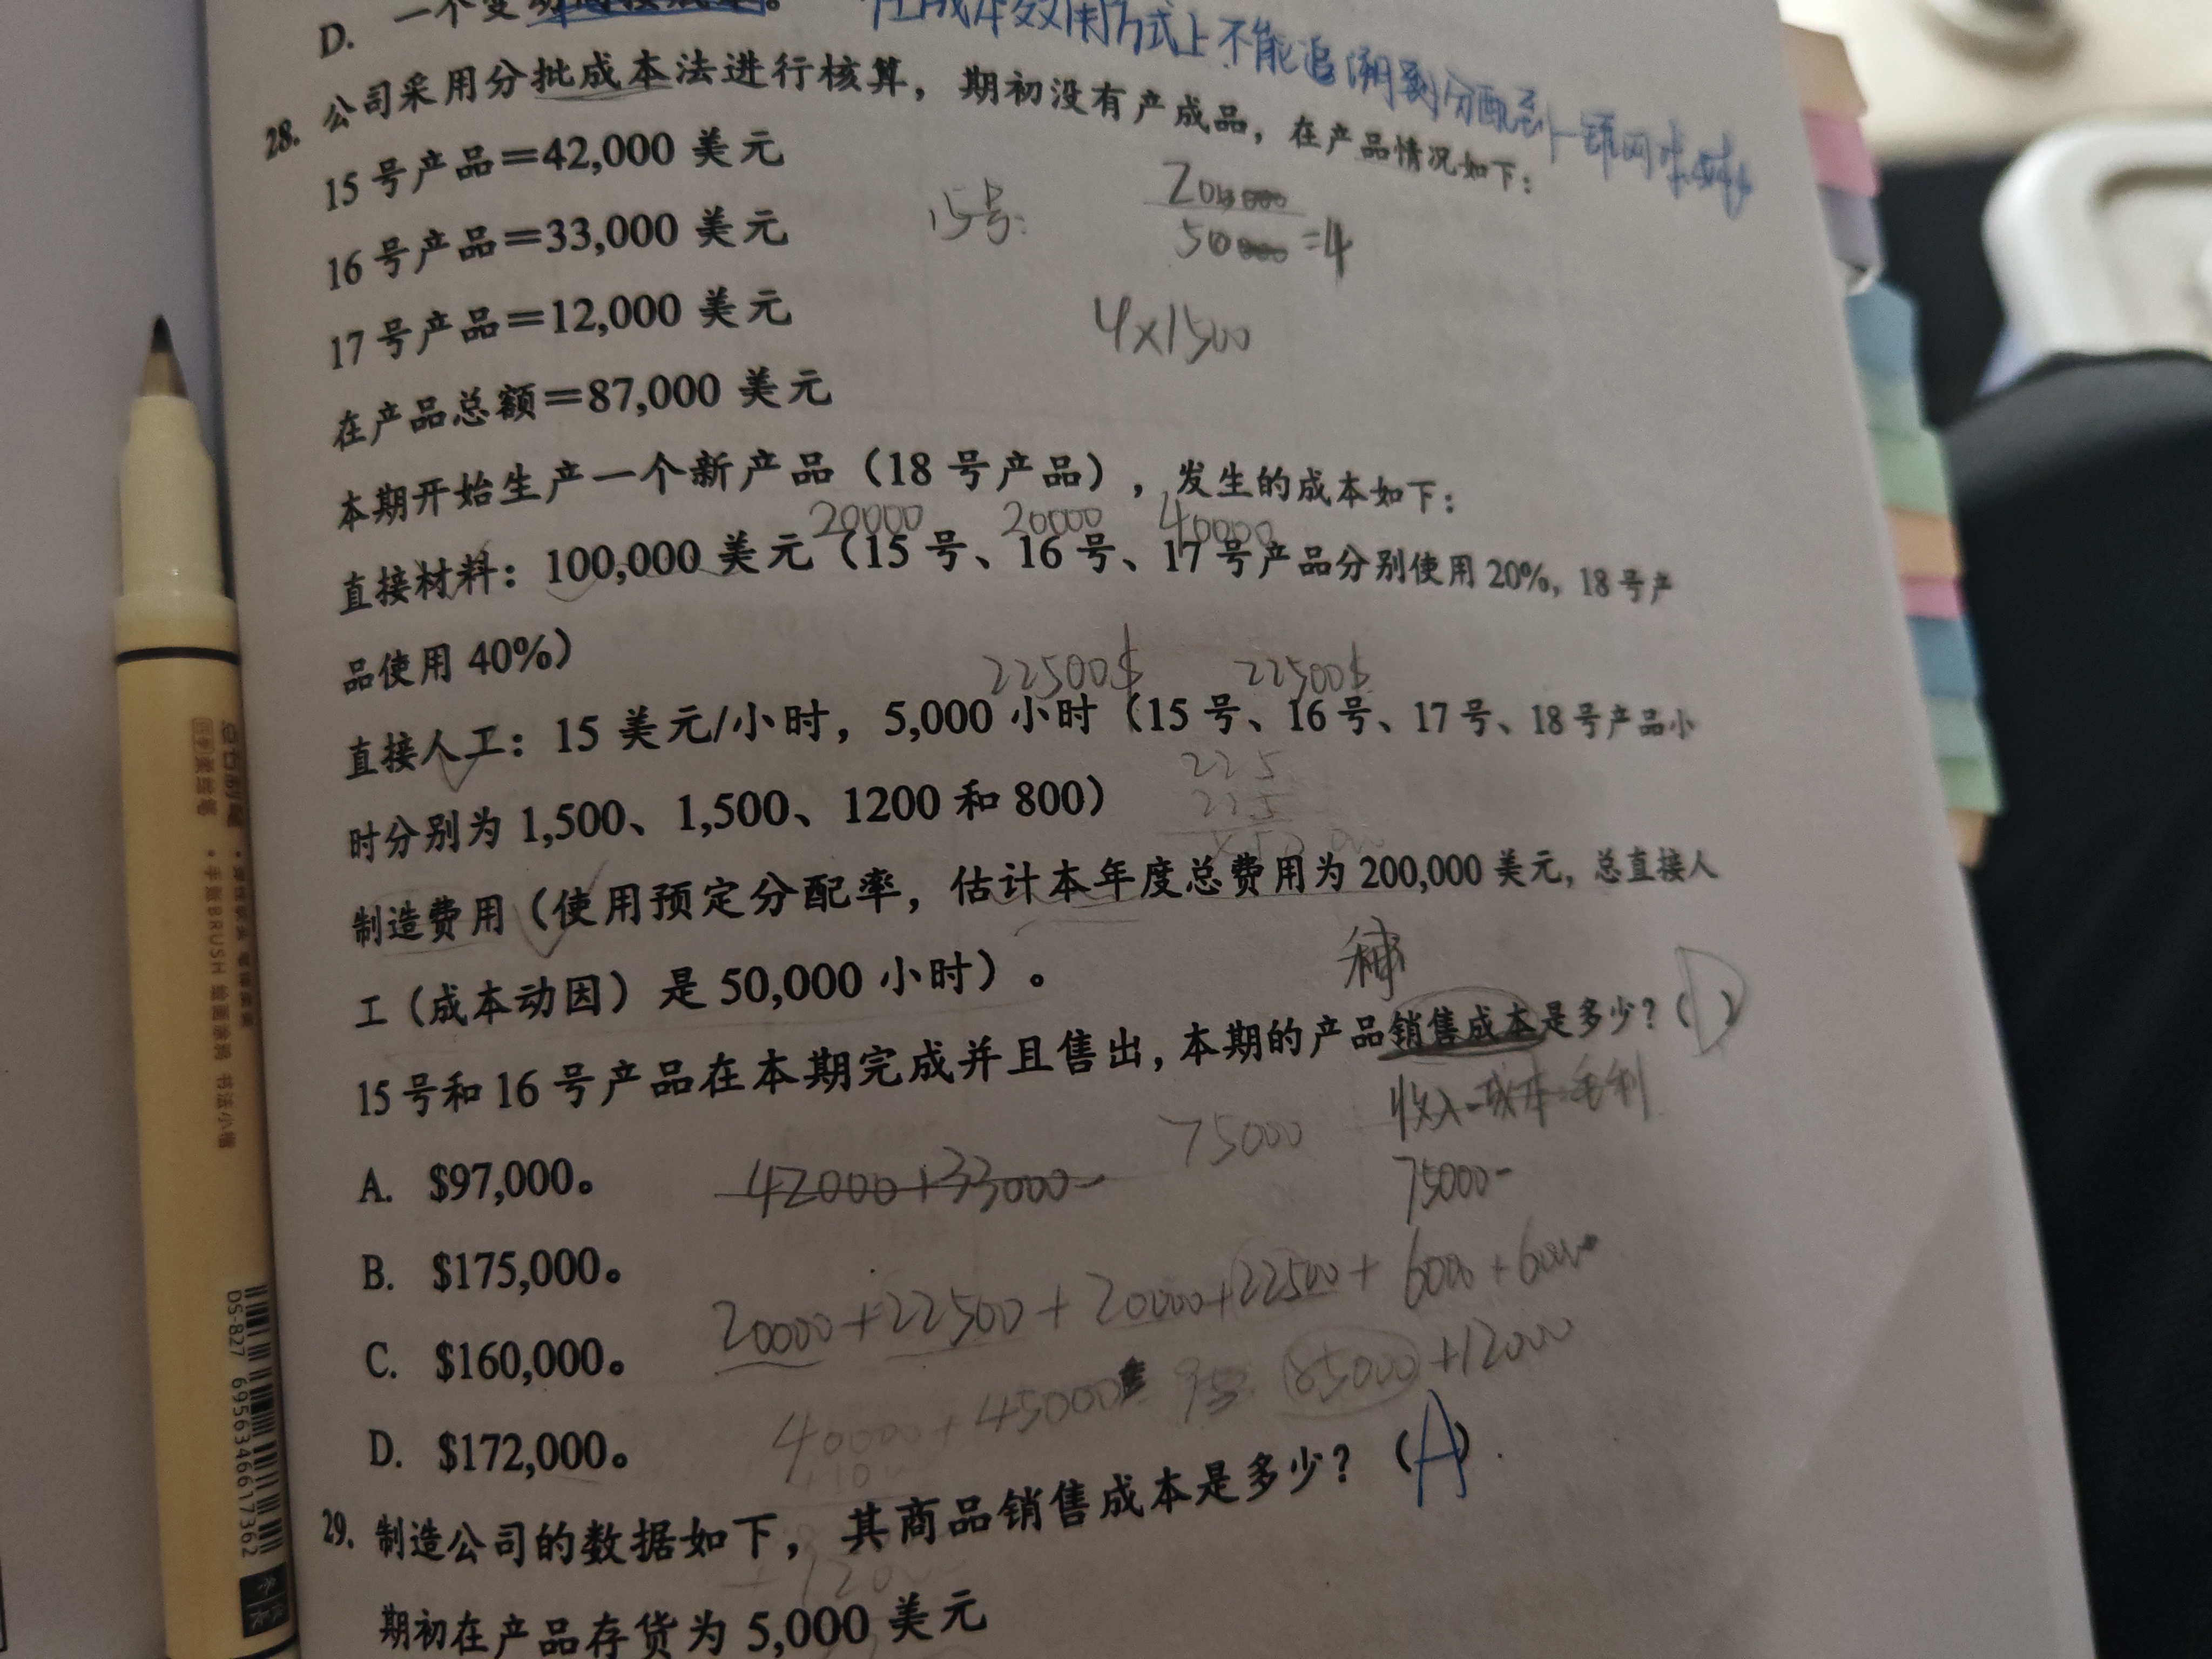 D. 一个变动
在成本效用方式上不能追溯到分配到一
28. 公司采用分批成本法进行核算，期初没有产成品，在产品情况如下：
15 号产品＝42,000 美元
15号:
200000
50000 =4
16 号产品＝33,000 美元
17 号产品＝12,000 美元
4×1500
在产品总额＝87,000 美元
本期开始生产一个新产品（18 号产品），发生的成本如下：
20000 20000 40000
直接材料：100,000 美元（15 号、16 号、17 号产品分别使用 20%，18 号产
品使用 40%）
22500$ 22500$
直接人工：15 美元/小时，5,000 小时（15 号、16 号、17 号、18 号产品小
时分别为 1,500、1,500、1200 和 800）
225
225
制造费用（使用预定分配率，估计本年度总费用为 200,000 美元，总直接人
工（成本动因）是 50,000 小时）。
15 号和 16 号产品在本期完成并且售出，本期的产品销售成本是多少？（D）
收入-成本=毛利
75000
75000-
A. $97,000。
42000+33000-
B. $175,000。
20000+22500+20000+22500+6000+6000
C. $160,000。
40000+45000 85000+12000
D. $172,000。
29. 制造公司的数据如下，其商品销售成本是多少？（A）.
期初在产品存货为 5,000 美元
DS-827 6956346617362